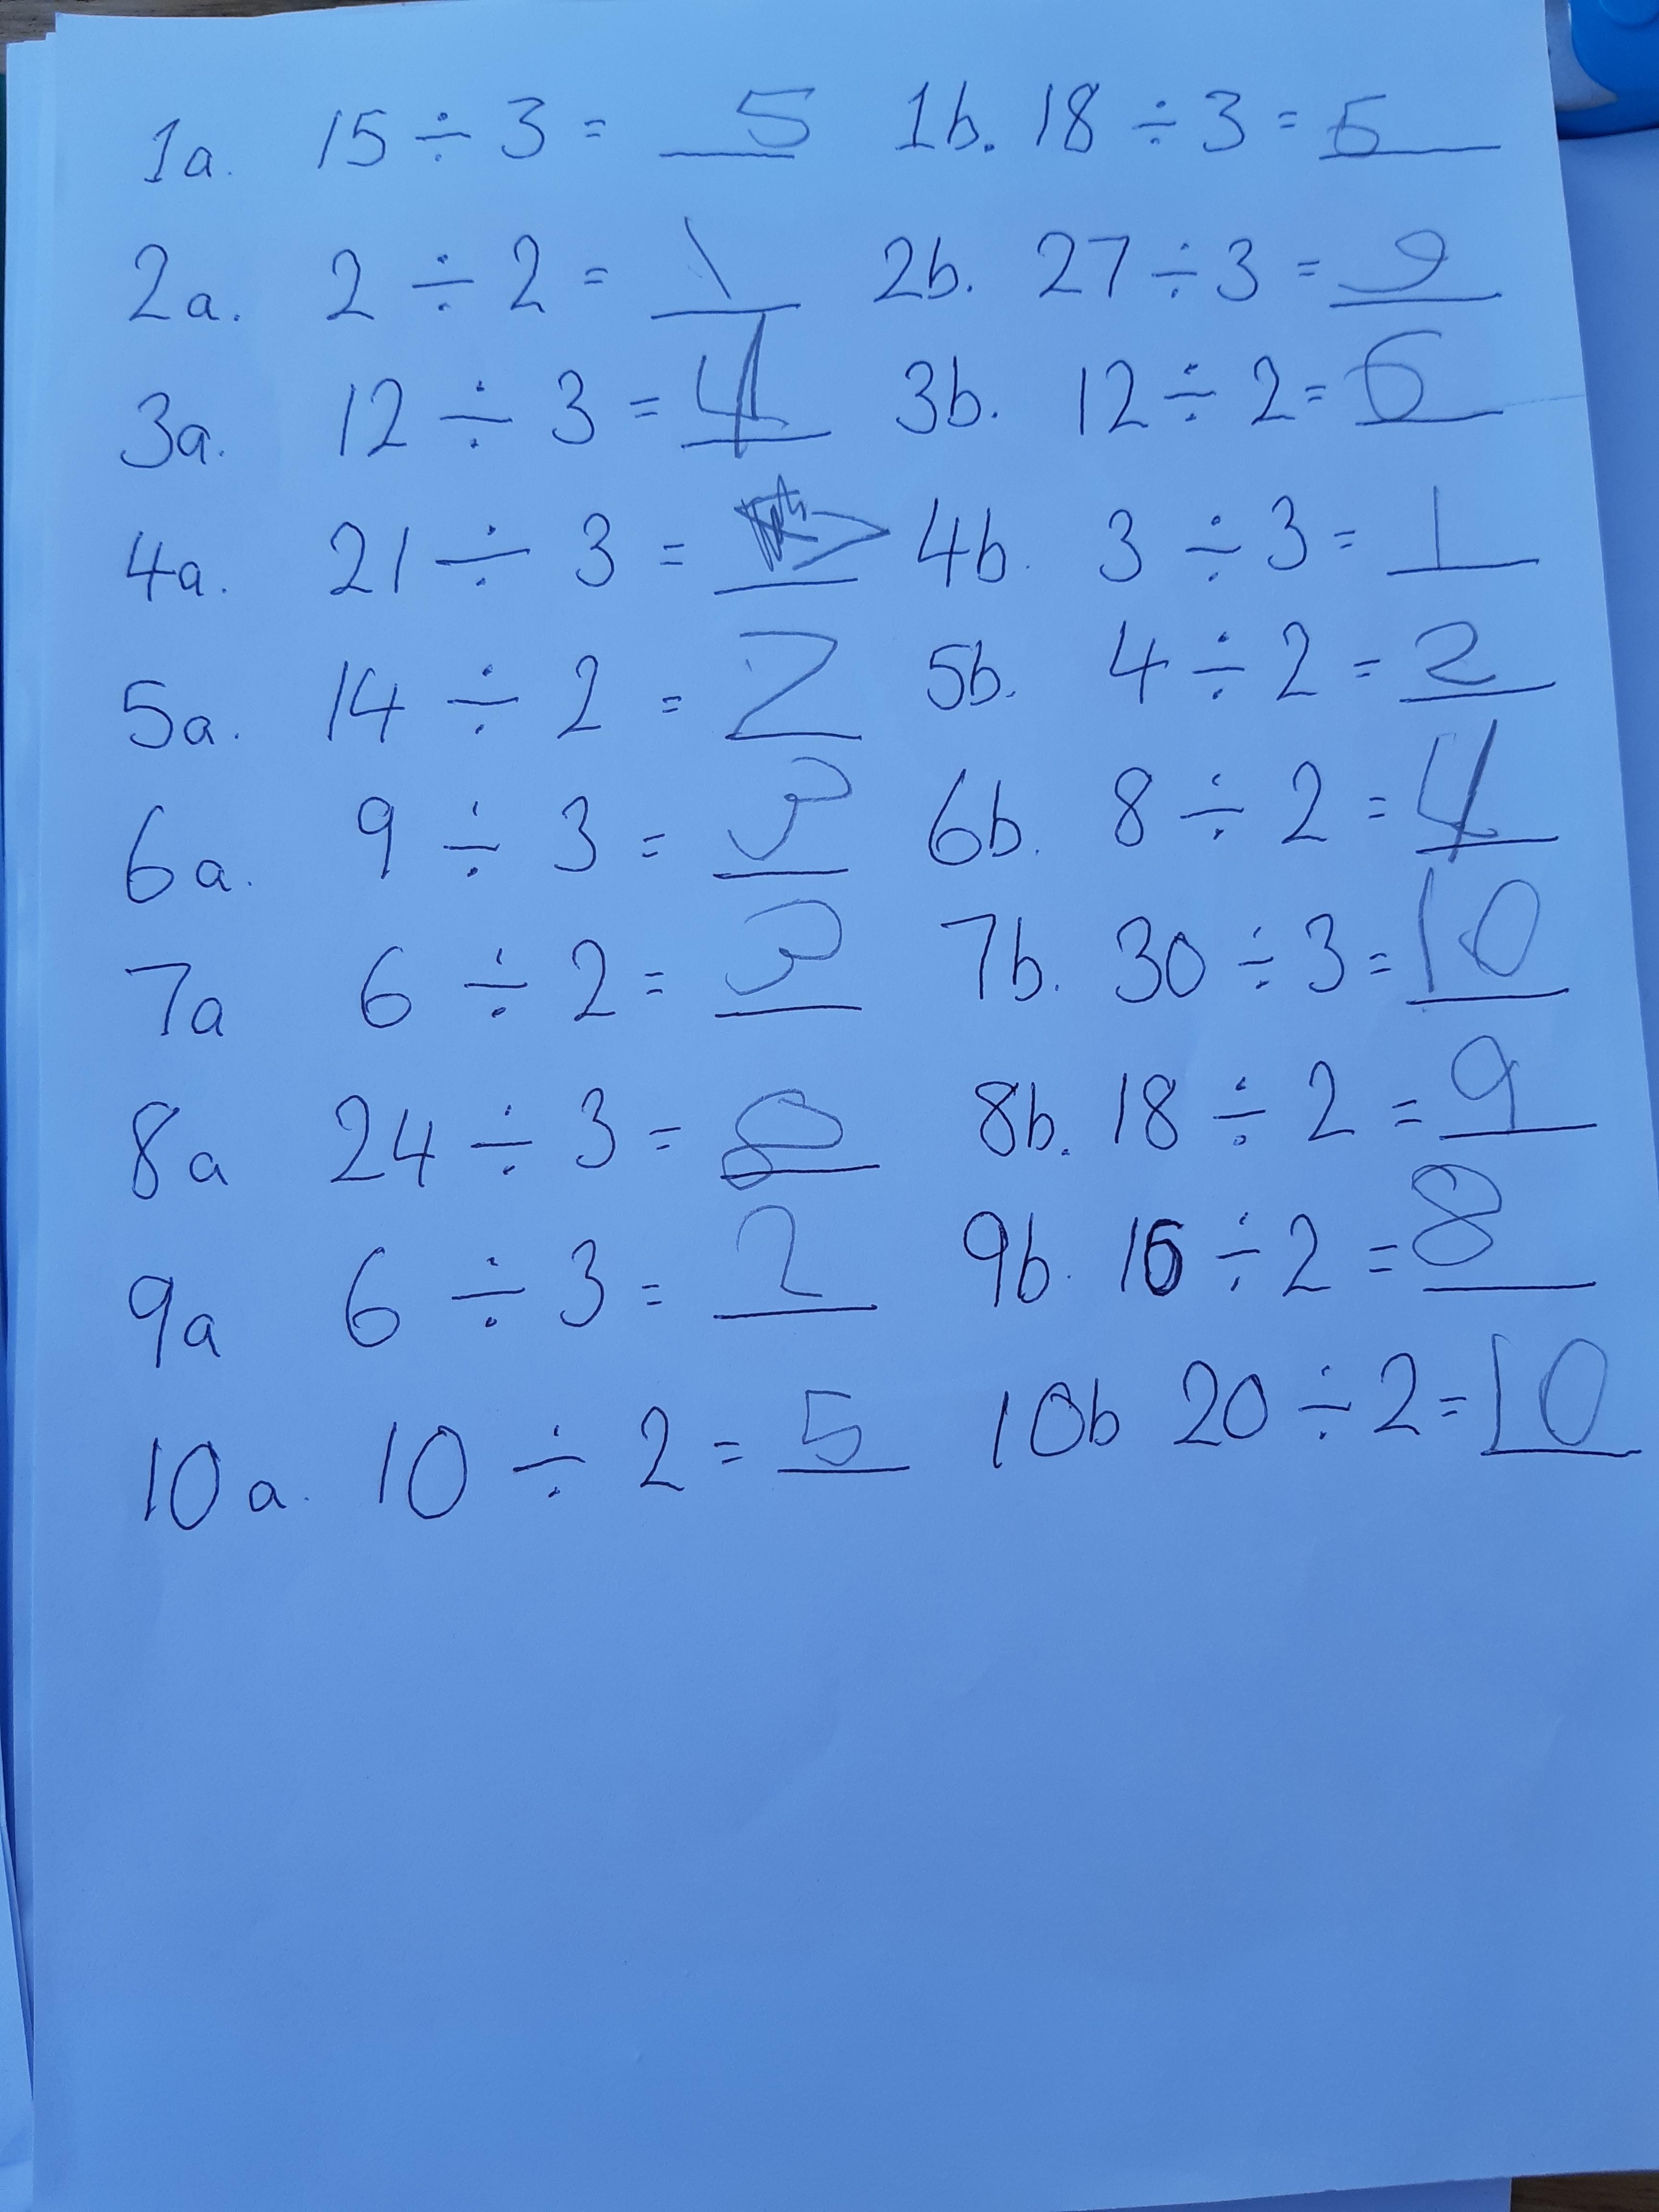 1a. 15 ÷ 3 = 5 1b. 18 ÷ 3 = 6
2a. 2 ÷ 2 = 1 2b. 27 ÷ 3 = 9
3a. 12 ÷ 3 = 4 3b. 12 ÷ 2 = 6
4a. 21 ÷ 3 = 7 4b. 3 ÷ 3 = 1
5a. 14 ÷ 2 = 7 5b. 4 ÷ 2 = 2
6a. 9 ÷ 3 = 3 6b. 8 ÷ 2 = 4
7a 6 ÷ 2 = 3 7b. 30 ÷ 3 = 10
8a 24 ÷ 3 = 8 8b. 18 ÷ 2 = 9
9a 6 ÷ 3 = 2 9b. 16 ÷ 2 = 8
10a. 10 ÷ 2 = 5 10b 20 ÷ 2 = 10